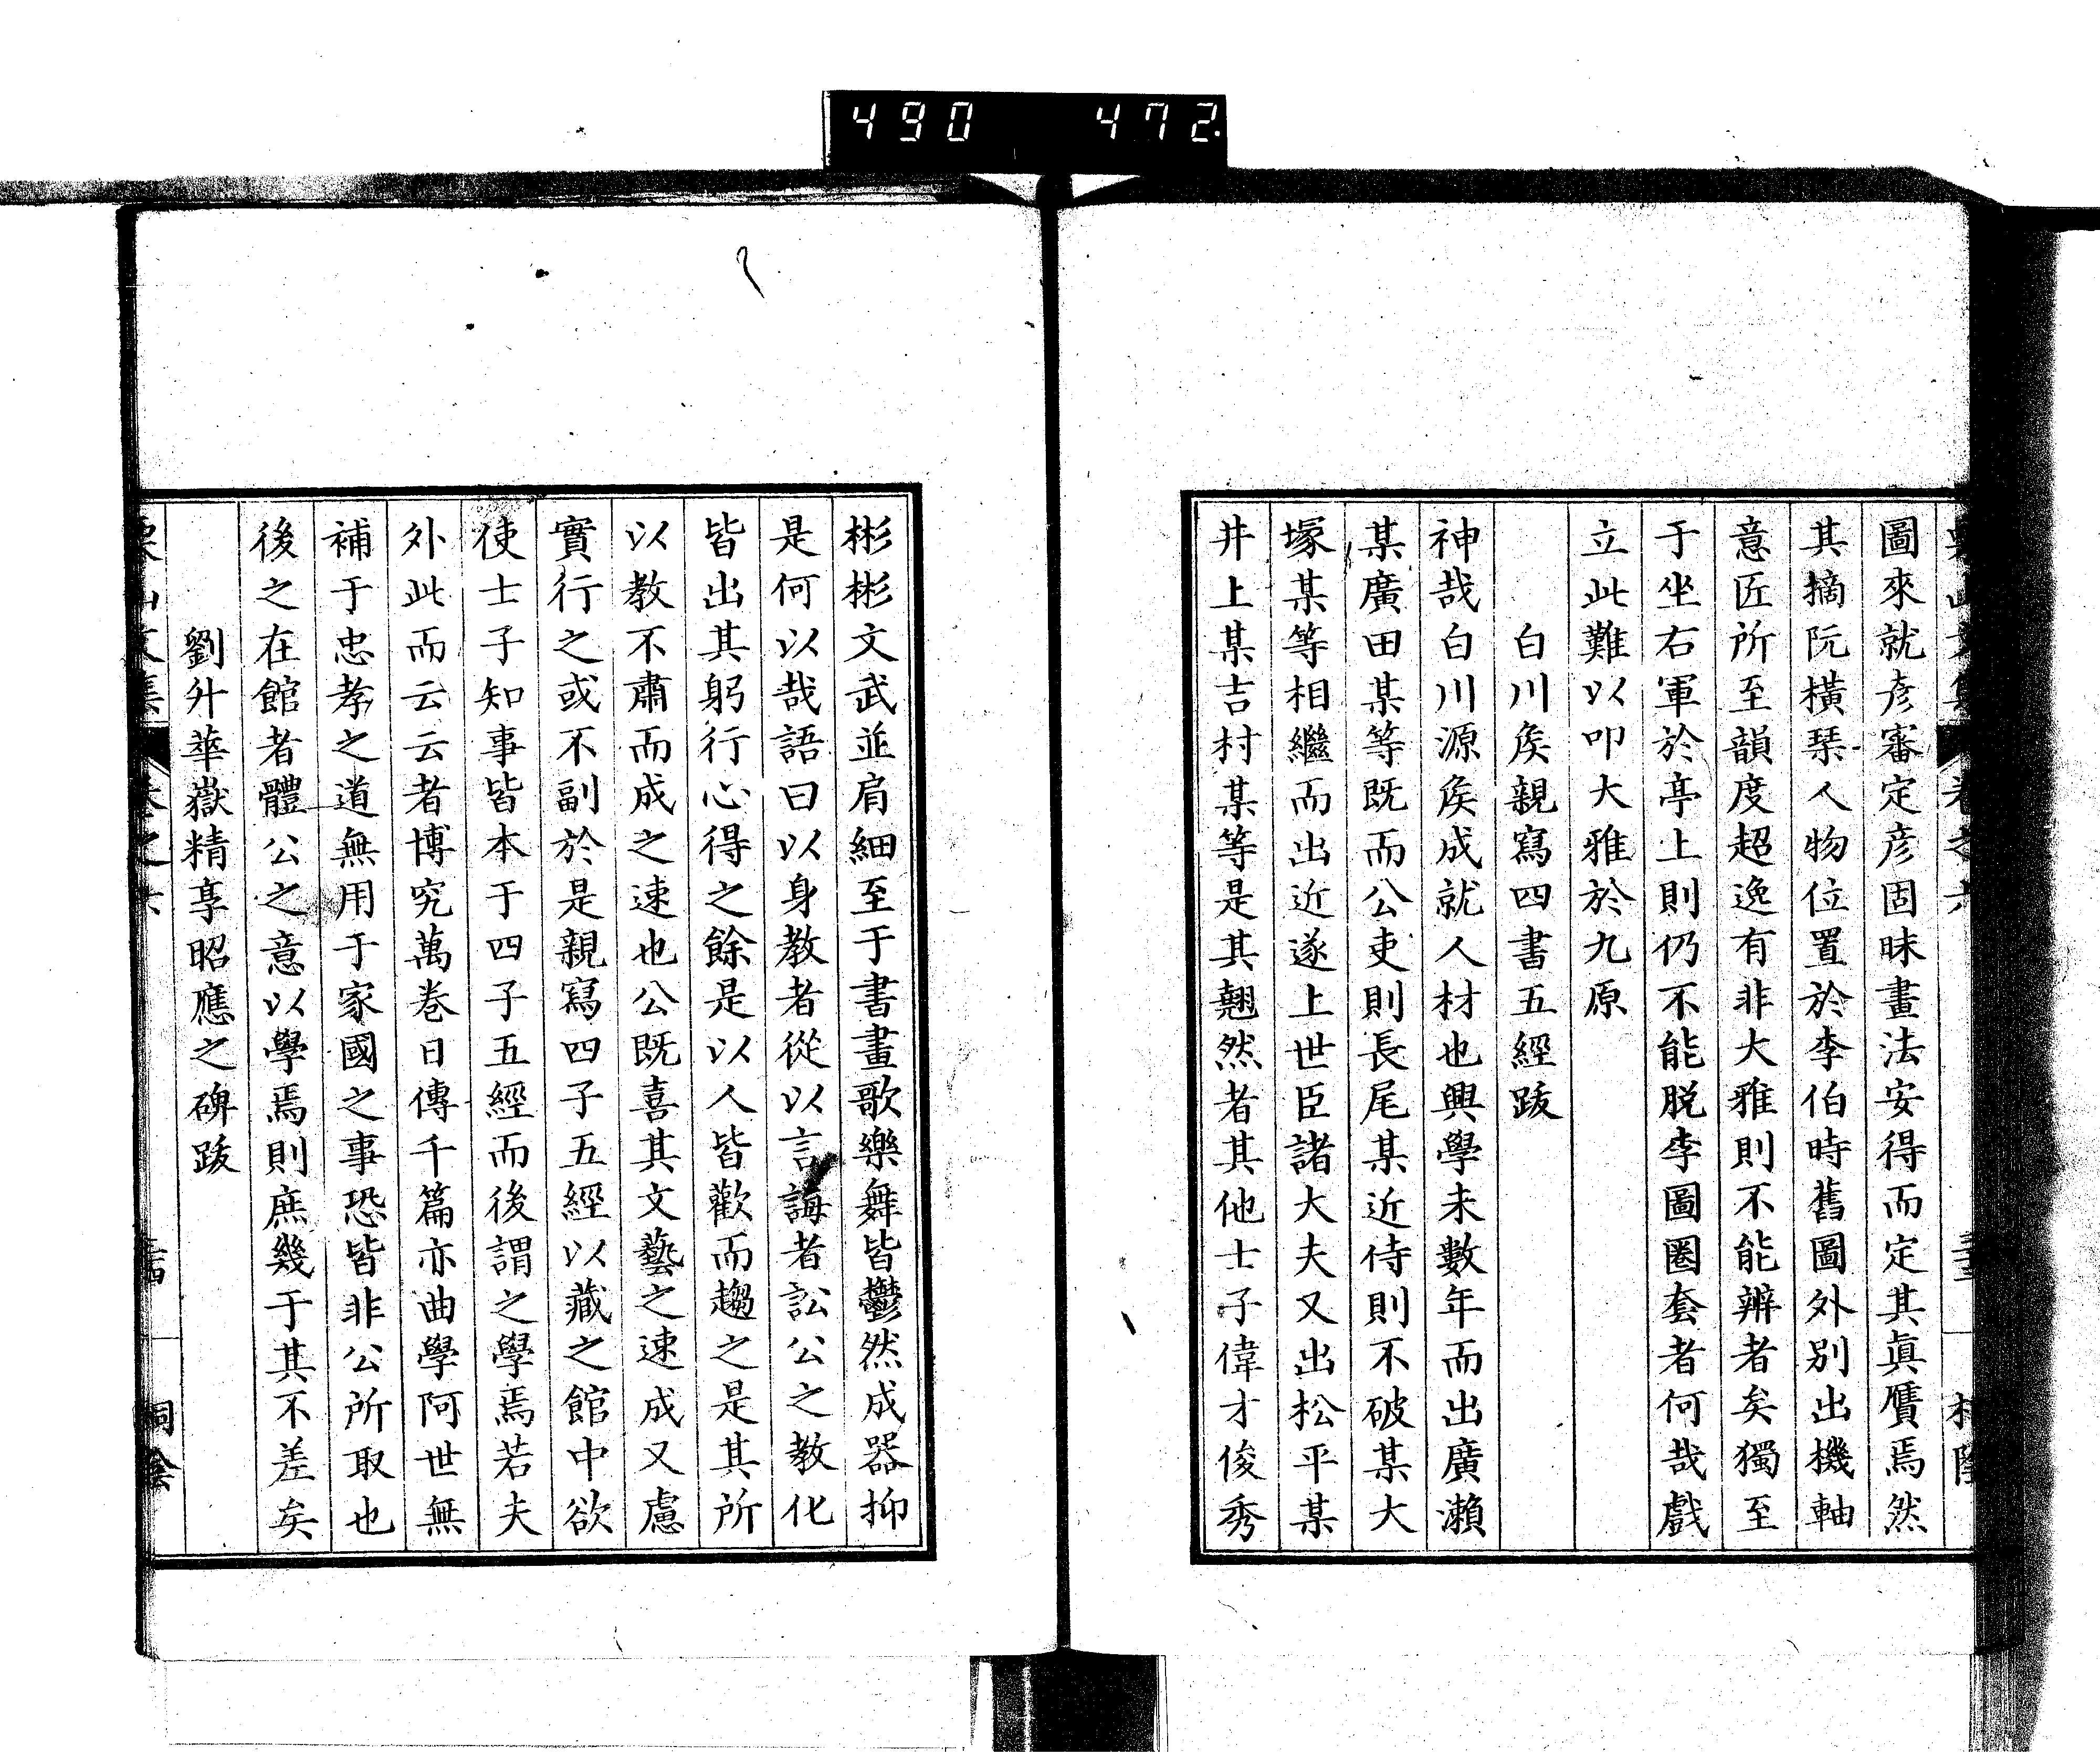 490 472
圖來就彦審定彦固昧畫法安得而定其眞贋焉然
其摘阮橫琴人物位置於李伯時舊圖外別出機軸
意匠所至韻度超逸有非大雅則不能辨者矣獨至
于坐右軍於亭上則仍不能脱李圖圈套者何哉戲
立此難以叩大雅於九原
白川矦親寫四書五經跋
神哉白川源矦成就人材也興學未數年而出廣瀨
某廣田某等既而公吏則長尾某近侍則不破某大
塚某等相繼而出近遂上世臣諸大夫又出松平某
井上某吉村某等是其翹然者其他士子偉才俊秀
彬彬文武並肩細至于書畫歌樂舞皆鬱然成器抑
是何以哉語曰以身教者從以言誨者訟公之教化
皆出其躬行心得之餘是以人皆歡而趨之是其所
以教不肅而成之速也公既喜其文藝之速成又慮
實行之或不副於是親寫四子五經以藏之館中欲
使士子知事皆本于四子五經而後謂之學焉若夫
外此而云云者博究萬卷日傳千篇亦曲學阿世無
補于忠孝之道無用于家國之事恐皆非公所取也
後之在館者體公之意以學焉則庶幾于其不差矣
劉升華嶽精享昭應之碑跋